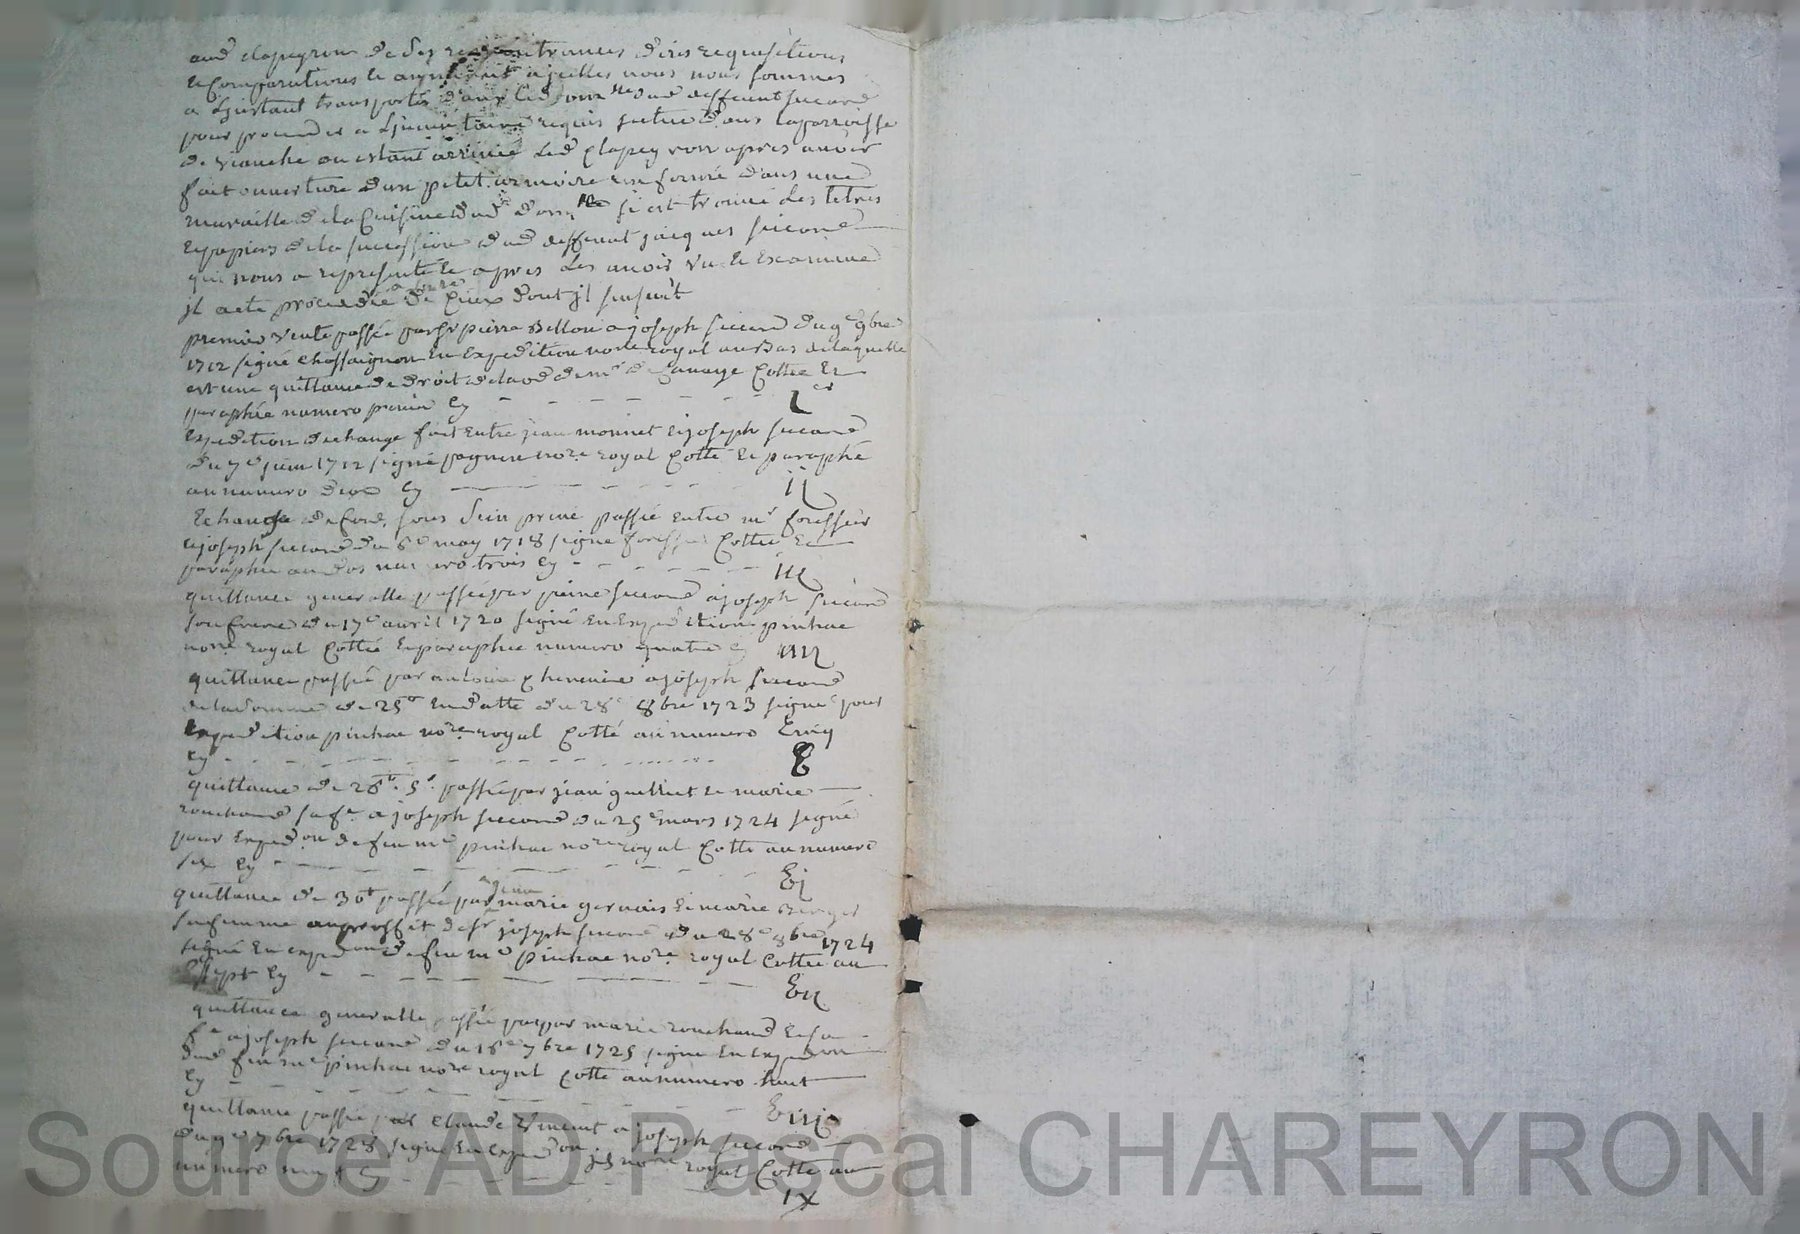 aud clapeyron de ses remontrances dires requisitions
& comparutions & aquiessant a jcelles nous nous sommes
a Linstant transportés dans led dom.lle dud deffunt sicard
pour proceder a Linventaire requis scitue dans la parroisse
de vranche ou estant arrivé Led Clapeyron apres avoir
fait ouverture dun petit armoire enfermé dans une
muraille de la Cuisine dud dom.lle si est trouvé Les tetres
& papiers de la succession dud deffunt jacques siccard
qui nous a representé & apres Les avoir vu & Examiné
jl a eté procedé a ceux dont jl sensuit
premier vente passée par Sr pierre Bellon a joseph siccard du 9e 9bre
1712 signé Chassaignon En Expedition nore royal au Bas de laquelle
est une quittance de droit de lavd de mr de Cottée &
paraphée numero premier Cy - - - - - - - 1er
Expedition dechange fait Entre jean monnet & joseph siccard
du 7e juin 1712 signé pagnere nore royal Cotté & paraphé
au numero deux Cy - - - - - - ii
Echange de fond, sous sein privé passé entre mr foressier
& joseph siccard du 6e may 1718 signé foressier Cottée &
paraphée au dos numero trois Cy - - - - - iii
quittance generalle passée par pierre siccard a joseph siccard
son frere du 17e avril 1720 signé En Expedition pinhac
nore royal Cottée & paraphée numero quatre Cy iiii
quittance passée par antoine a joseph siccard
de la somme de 25# En datte du 28e 8bre 1723 signé pour
Expedition pinhac nore royal Cotté au numero Cinq
Cy - - - - - - - - - - - - - - - -
quittance de 26# 5s passée par jean & marie
rouchand sa fe a joseph siccard du 25e mars 1724 signé
pour Exped.on de feu me pinhac nore royal Cotté au numero
six Cy - - - - - - - - vi
quittance de 30# passée par marie gervais & marie
sa femme au proffit de sr joseph siccard du 28e 8bre 1724
signé En exped.on de feu me pinhac nore royal Cottée au
sept Cy - - - - - - - vii
quittance generalle passée par marie rouchand & sa
fe a joseph siccard du 18e 7bre 1725 signé En Exped.on
dud feu me pinhac nore royal Cotté au numero huit
Cy - - - - - - - - - viii
quittance passée par Claude Viment a joseph siccard
du 9e 7bre 1728 signé En Exped.on nore royal Cotté au
numero neuf Cy - - - - - - IX
Source AD Pascal CHAREYRON